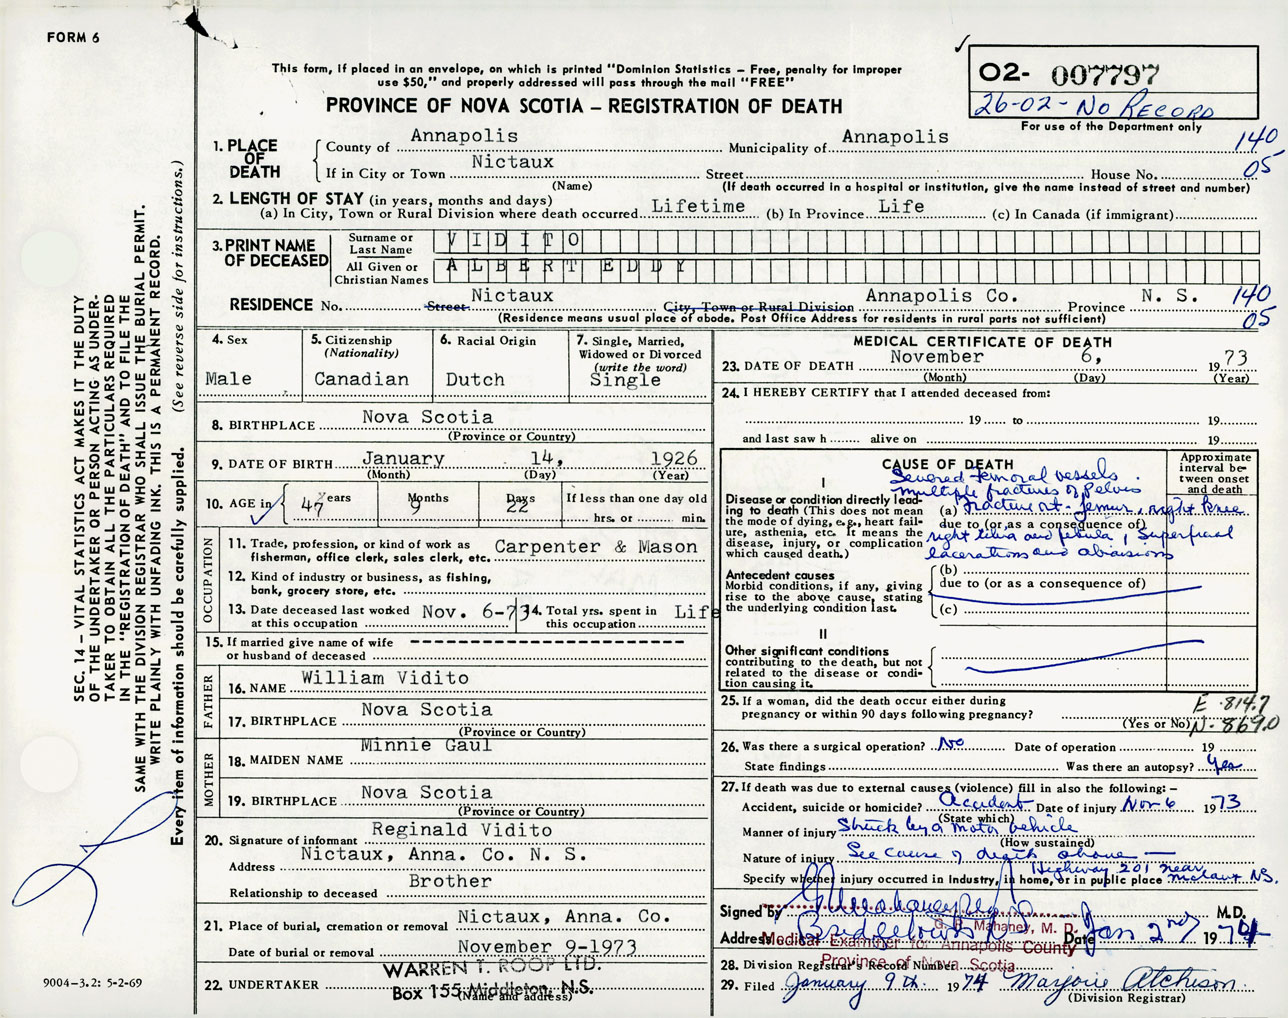 FORM 6
This form, if placed in an envelope, on which is printed "Dominion Statistics – Free, penalty for improper
use $50," and properly addressed will pass through the mail "FREE"
PROVINCE OF NOVA SCOTIA – REGISTRATION OF DEATH
02- 007797
26-02 - NO RECORD
For use of the Department only
SEC. 14 – VITAL STATISTICS ACT MAKES IT THE DUTY
OF THE UNDERTAKER OR PERSON ACTING AS UNDER-
TAKER TO OBTAIN ALL THE PARTICULARS REQUIRED
IN THE "REGISTRATION OF DEATH" AND TO FILE THE
SAME WITH THE DIVISION REGISTRAR WHO SHALL ISSUE THE BURIAL PERMIT.
WRITE PLAINLY WITH UNFADING INK. THIS IS A PERMANENT RECORD.
Every item of information should be carefully supplied. (See reverse side for instructions.)
1. PLACE OF DEATH
County of Annapolis Municipality of Annapolis 140
If in City or Town Nictaux Street House No. 05
(Name) (If death occurred in a hospital or institution, give the name instead of street and number)
2. LENGTH OF STAY (in years, months and days)
(a) In City, Town or Rural Division where death occurred Lifetime (b) In Province Life (c) In Canada (if immigrant)
3. PRINT NAME OF DECEASED
Surname or Last Name VIDITO
All Given or Christian Names ALBERT EDDY
RESIDENCE No. Street Nictaux City, Town or Rural Division Annapolis Co. Province N. S. 140
05
(Residence means usual place of abode. Post Office Address for residents in rural parts not sufficient)
4. Sex
Male
5. Citizenship
(Nationality)
Canadian
6. Racial Origin
Dutch
7. Single, Married,
Widowed or Divorced
(write the word)
Single
8. BIRTHPLACE Nova Scotia
(Province or Country)
9. DATE OF BIRTH January 14, 1926
(Month) (Day) (Year)
10. AGE in Years Months Days If less than one day old
47 9 22 hrs. or min.
OCCUPATION
11. Trade, profession, or kind of work as
fisherman, office clerk, sales clerk, etc. Carpenter & Mason
12. Kind of industry or business, as fishing,
bank, grocery store, etc.
13. Date deceased last worked
at this occupation Nov. 6-73
14. Total yrs. spent in
this occupation Life
15. If married give name of wife
or husband of deceased
FATHER
16. NAME William Vidito
17. BIRTHPLACE Nova Scotia
(Province or Country)
MOTHER
18. MAIDEN NAME Minnie Gaul
19. BIRTHPLACE Nova Scotia
(Province or Country)
20. Signature of informant Reginald Vidito
Address Nictaux, Anna. Co. N. S.
Relationship to deceased Brother
21. Place of burial, cremation or removal Nictaux, Anna. Co.
Date of burial or removal November 9-1973
22. UNDERTAKER WARREN T. ROOP LTD.
Box 155 Middleton, N.S.
(Name and address)
9004-3.2: 5-2-69
MEDICAL CERTIFICATE OF DEATH
23. DATE OF DEATH November 6, 1973
(Month) (Day) (Year)
24. I HEREBY CERTIFY that I attended deceased from:
19 to 19
and last saw h alive on 19
CAUSE OF DEATH
Approximate
interval be-
tween onset
and death
I
Disease or condition directly lead-
ing to death (This does not mean
the mode of dying, e.g., heart fail-
ure, asthenia, etc. It means the
disease, injury, or complication
which caused death.)
Severed femoral vessels.
multiple fractures of Pelvis
(a) fracture rt. femur, right knee
due to (or as a consequence of)
right tibia and fibula, Superficial
lacerations and abrasions
Antecedent causes
Morbid conditions, if any, giving
rise to the above cause, stating
the underlying condition last.
(b)
due to (or as a consequence of)
(c)
II
Other significant conditions
contributing to the death, but not
related to the disease or condi-
tion causing it.
25. If a woman, did the death occur either during
pregnancy or within 90 days following pregnancy?
(Yes or No)
E 814.7
N-869.0
26. Was there a surgical operation? No Date of operation 19
State findings Was there an autopsy? Yes
27. If death was due to external causes (violence) fill in also the following: –
Accident, suicide or homicide? Accident Date of injury Nov 6 1973
(State which)
Manner of injury Struck by a motor vehicle
(How sustained)
Nature of injury See cause of death above —
Highway 201 near
Specify whether injury occurred in Industry, in home, or in public place Nictaux NS.
Signed by M.D.
G. B. Mahaney, M. D.
Address Bridgetown NS Date Jan 2nd 1974
Medical Examiner for Annapolis County
Province of Nova Scotia
28. Division Registrar's Record Number
29. Filed January 9th. 1974 Marjorie Atchison
(Division Registrar)